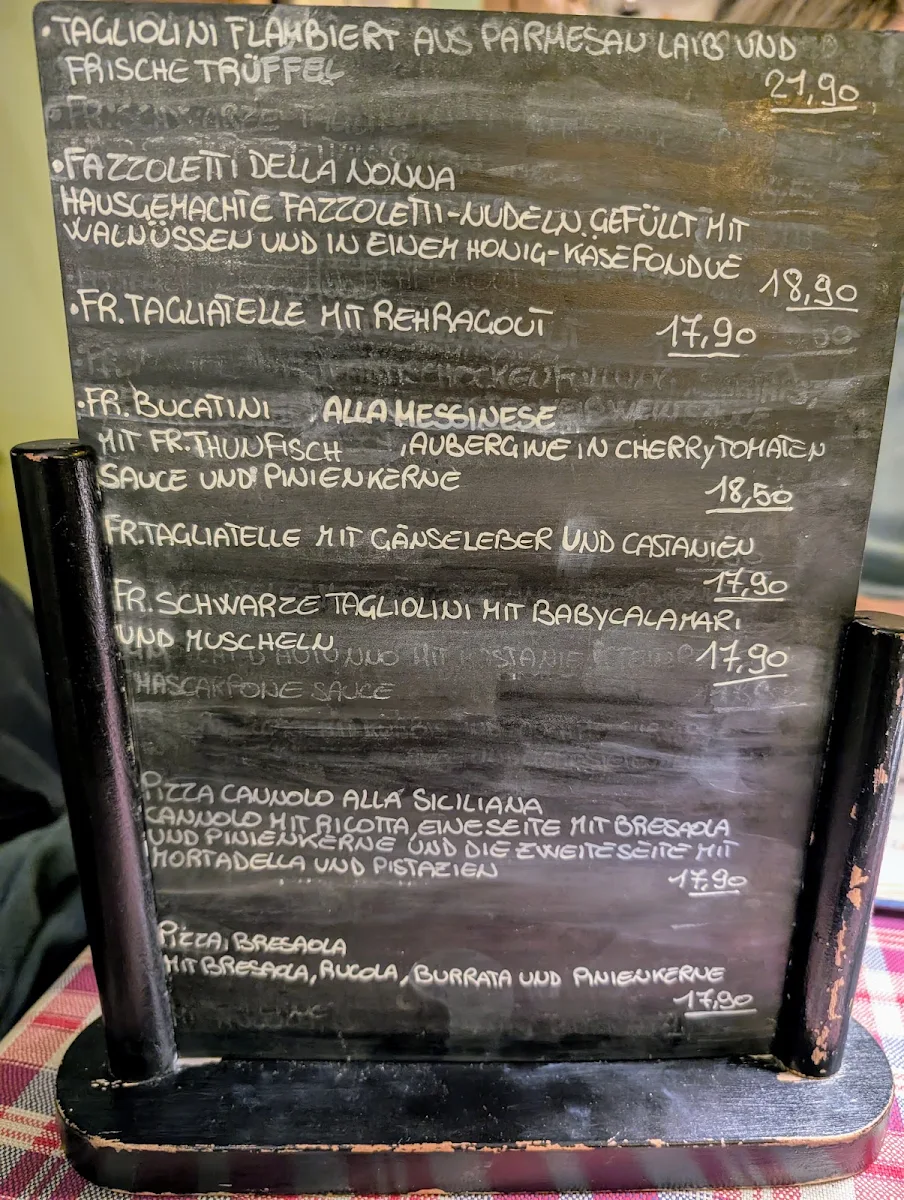 •TAGLIOLINI FLAMBIERT AUS PARMESAN LAIB UND
FRISCHE TRÜFFEL
21,90
•FAZZOLETTI DELLA NONNA
HAUSGEMACHTE FAZZOLETTI-NUDELN GEFÜLLT MIT
WALNÜSSEN UND IN EINEM HONIG-KÄSEFONDUE
18,90
•FR. TAGLIATELLE MIT REHRAGOUT 17,90
•FR. BUCATINI ALLA MESSINESE
MIT FR. THUNFISCH , AUBERGINE IN CHERRYTOMATEN
SAUCE UND PINIENKERNE
18,50
FR. TAGLIATELLE MIT GÄNSELEBER UND CASTANIEN
17,90
FR. SCHWARZE TAGLIOLINI MIT BABYCALAMARI
UND MUSCHELN 17,90
MASCARPONE SAUCE
PIZZA CANNOLO ALLA SICILIANA
CANNOLO MIT RICOTTA, EINE SEITE MIT BRESAOLA
UND PINIENKERNE UND DIE ZWEITE SEITE MIT
MORTADELLA UND PISTAZIEN
17,90
PIZZA BRESAOLA
MIT BRESAOLA, RUCOLA, BURRATA UND PINIENKERNE
17,90